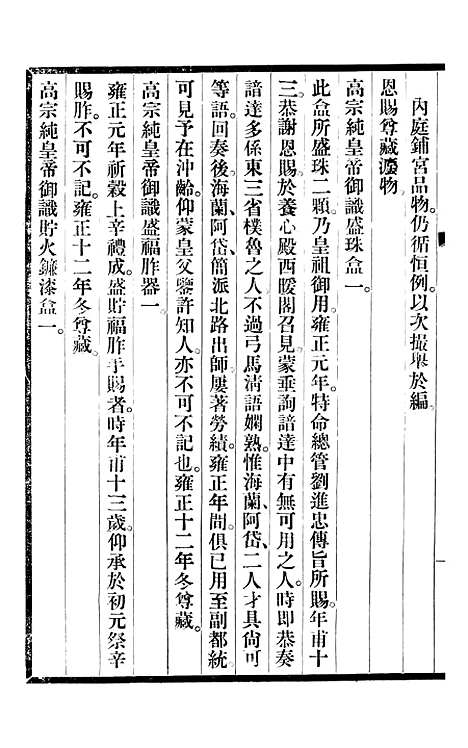 內庭鋪宮品物。仍循恒例。以次撮舉於編。
恩賜尊藏瓌物
高宗純皇帝御識盛珠盒一。
此盒所盛珠二顆。乃皇祖御用。雍正元年。特命總管劉進忠傳旨所賜。年甫十
三。恭謝恩賜。於養心殿西暖閣召見。蒙垂詢諳達中有無可用之人。時卽恭奏
諳達多係東三省樸魯之人。不過弓馬淸語嫻熟。惟海蘭、阿岱、二人才具尙可
等語。回奏後。海蘭、阿岱、簡派北路出師。屢著勞績。雍正年間。俱已用至副都統。
可見予在沖齡。仰蒙皇父鑒許知人。亦不可不記也。雍正十二年冬。尊藏。
高宗純皇帝御識盛福胙器一
雍正元年祈穀上辛禮成。盛貯福胙手賜者。時年甫十三歲。仰承於初元祭辛
賜胙。不可不記。雍正十二年冬。尊藏。
高宗純皇帝御識貯火鐮漆盒一。